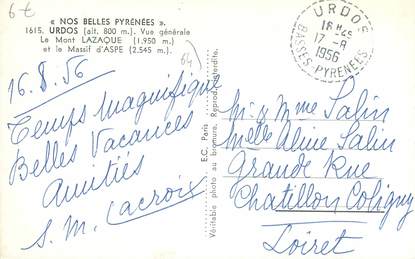 6€
« NOS BELLES PYRÉNÉES ».
1615. URDOS (alt. 800 m.). Vue générale
Le Mont LAZAQUE (1.950 m.)
et le Massif d'ASPE (2.545 m.)
64
URDOS
16 H 45
17 - 8
1956
BASSES-PYRÉNÉES
16.8.56
Temps magnifique
Belles Vacances
Amitiés
S. M. Lacroix
E.C., Paris
Véritable photo au bromure, Reprod. interdite.
Mr & Mme Salin
Melle Aline Salin
Grande Rue
Chatillon Coligny
Loiret